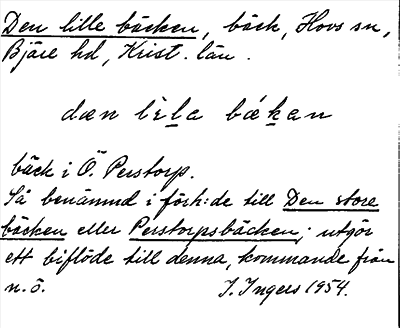 Den lille bäcken, bäck, Hovs sn,
Bjäre hd, Krist. län.
dæn lìla bǽkan
bäck i Ö. Perstorp.
Så benämnd i förh:de till Den store
bäcken eller Perstorpsbäcken; utgör
ett biflöde till denna, kommande från
n.ö.
I. Ingers 1954.